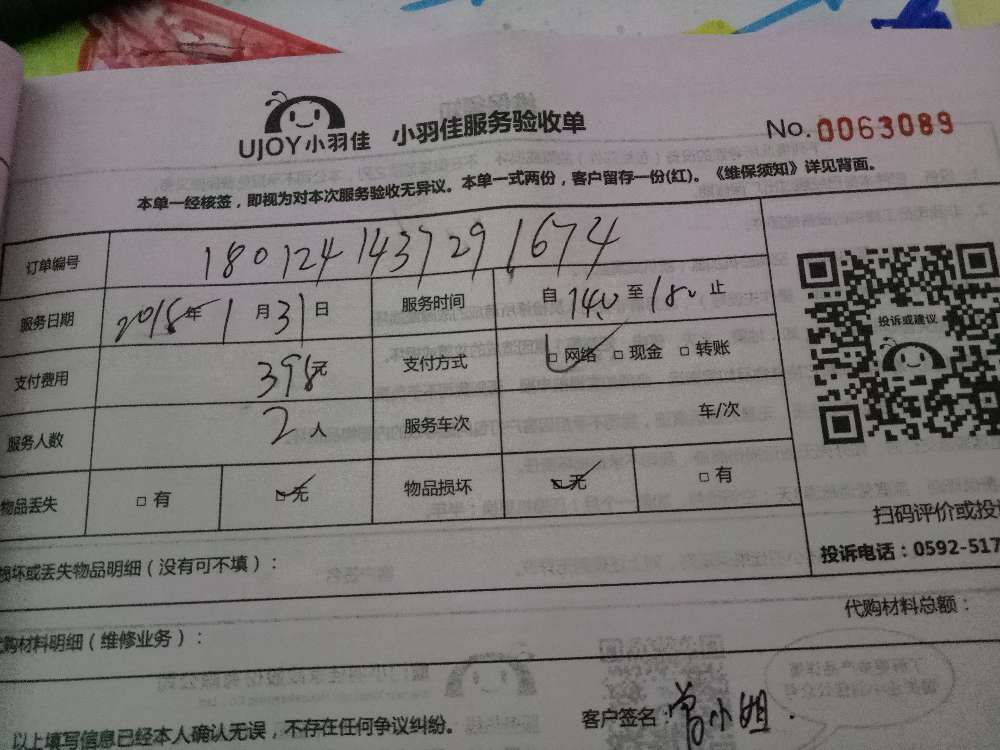 UJOY小羽佳 小羽佳服务验收单 No.0063089
本单一经核签，即视为对本次服务验收无异议。本单一式两份，客户留存一份(红)。《维保须知》详见背面。
订单编号 180124143729 1674
服务日期 2018年1月31日 服务时间 自 14:0 至 180 止
投诉或建议
支付费用 398元 支付方式 □网络 □现金 □转账
服务人数 2人 服务车次 车/次
物品丢失 □有 □无 物品损坏 □无 □有
扫码评价或投
投诉电话：0592-517
损坏或丢失物品明细（没有可不填）：
代购材料总额：
代购材料明细（维修业务）：
以上填写信息已经本人确认无误，不存在任何争议纠纷。
客户签名：曾小姐.